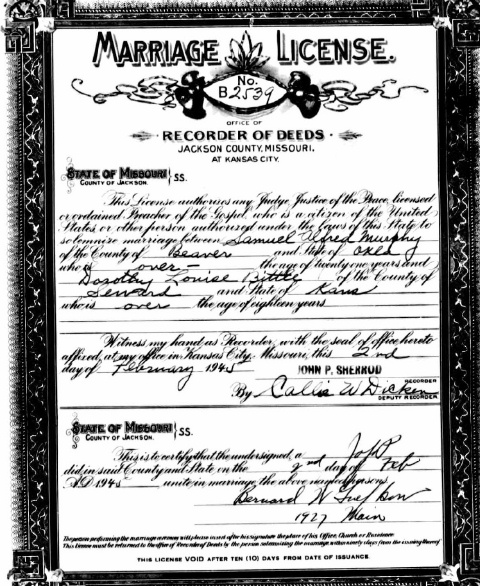 MARRIAGE LICENSE.
No.
B 2539
OFFICE OF
RECORDER OF DEEDS
JACKSON COUNTY, MISSOURI.
AT KANSAS CITY.
STATE OF MISSOURI } SS.
COUNTY OF JACKSON.
This License authorizes any Judge, Justice of the Peace, licensed
or ordained Preacher of the Gospel, who is a citizen of the United
States, or other person authorized under the Laws of this State, to
solemnize marriage between Samuel Alfred Murphy
of the County of Beaver and State of Okla
who is over the age of twenty one years and
Dorothy Louise of the County of
Seward and State of Kans
who is over the age of eighteen years.
Witness my hand as Recorder, with the seal of office hereto
affixed, at my office in Kansas City, Missouri, this 2nd
day of February 1945 JOHN P. SHERROD
RECORDER
By Callie W Dicken
DEPUTY RECORDER
STATE OF MISSOURI } SS.
COUNTY OF JACKSON.
This is to certify that the undersigned, a J of P
did, in said County and State on the 2nd day of Feb
A.D. 1945 unite in marriage the above named persons
Bernard W
1927 Main
The person performing the marriage ceremony will please insert after his signature the place of his Office, Church or Residence
This License must be returned to the office of Recorder of Deeds by the person solemnizing the marriage within ninety days from the issuing thereof
THIS LICENSE VOID AFTER TEN (10) DAYS FROM DATE OF ISSUANCE.